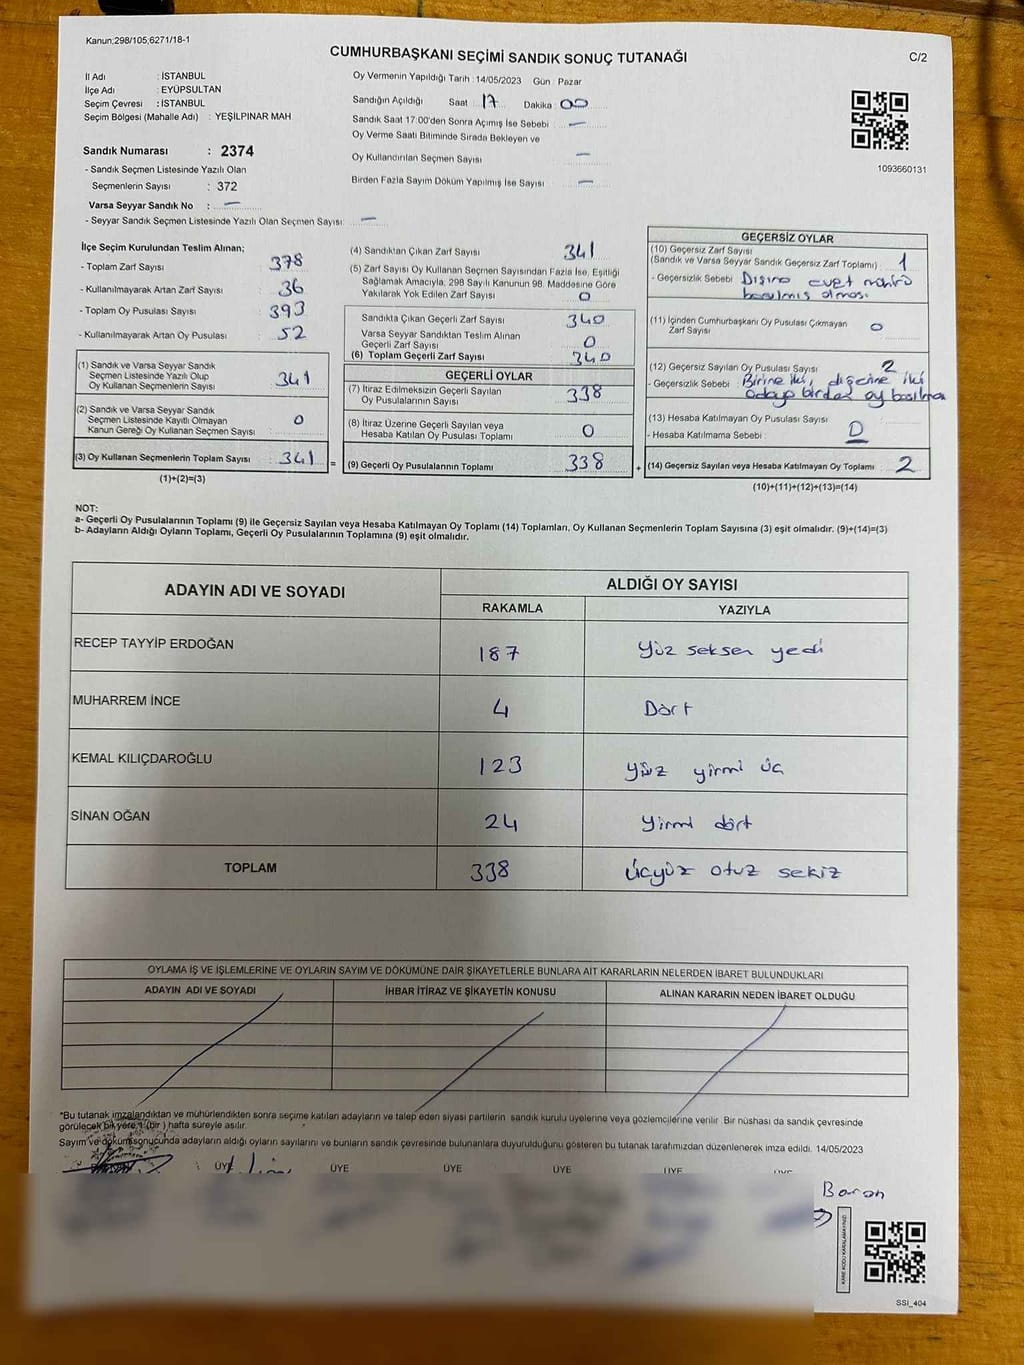 Kanun;298/105,6271/18-1
CUMHURBAŞKANI SEÇİMİ SANDIK SONUÇ TUTANAĞI
C/2
İl Adı : İSTANBUL
İlçe Adı : EYÜPSULTAN
Seçim Çevresi : İSTANBUL
Seçim Bölgesi (Mahalle Adı) : YEŞİLPINAR MAH
Sandık Numarası : 2374
- Sandık Seçmen Listesinde Yazılı Olan
Seçmenlerin Sayısı : 372
Varsa Seyyar Sandık No : —
- Seyyar Sandık Seçmen Listesinde Yazılı Olan Seçmen Sayısı: —
Oy Vermenin Yapıldığı Tarih : 14/05/2023 Gün : Pazar
Sandığın Açıldığı Saat : 17 Dakika : 00
Sandık Saat 17:00'den Sonra Açımış İse Sebebi : —
Oy Verme Saati Bitiminde Sırada Bekleyen ve
Oy Kullandırılan Seçmen Sayısı : —
Birden Fazla Sayım Döküm Yapılmış İse Sayısı : —
1093660131
İlçe Seçim Kurulundan Teslim Alınan;
- Toplam Zarf Sayısı : 378
- Kullanılmayarak Artan Zarf Sayısı : 36
- Toplam Oy Pusulası Sayısı : 393
- Kullanılmayarak Artan Oy Pusulası : 52
(1) Sandık ve Varsa Seyyar Sandık
Seçmen Listesinde Yazılı Olup
Oy Kullanan Seçmenlerin Sayısı : 341
(2) Sandık ve Varsa Seyyar Sandık
Seçmen Listesinde Kayıtlı Olmayan
Kanun Gereği Oy Kullanan Seçmen Sayısı : 0
(3) Oy Kullanan Seçmenlerin Toplam Sayısı : 341 =
(1)+(2)=(3)
(4) Sandıktan Çıkan Zarf Sayısı 341
(5) Zarf Sayısı Oy Kullanan Seçmen Sayısından Fazla İse, Eşitliği
Sağlamak Amacıyla, 298 Sayılı Kanunun 98. Maddesine Göre
Yakılarak Yok Edilen Zarf Sayısı 0
Sandıkta Çıkan Geçerli Zarf Sayısı 340
Varsa Seyyar Sandıktan Teslim Alınan
Geçerli Zarf Sayısı 0
(6) Toplam Geçerli Zarf Sayısı 340
GEÇERLİ OYLAR
(7) İtiraz Edilmeksizin Geçerli Sayılan
Oy Pusulalarının Sayısı 338
(8) İtiraz Üzerine Geçerli Sayılan veya
Hesaba Katılan Oy Pusulası Toplamı 0
(9) Geçerli Oy Pusulalarının Toplamı 338 +
GEÇERSİZ OYLAR
(10) Geçersiz Zarf Sayısı
(Sandık ve Varsa Seyyar Sandık Geçersiz Zarf Toplamı) 1
- Geçersizlik Sebebi : Dışına evet mührü
basılmış olması
(11) İçinden Cumhurbaşkanı Oy Pusulası Çıkmayan
Zarf Sayısı 0
(12) Geçersiz Sayılan Oy Pusulası Sayısı 2
- Geçersizlik Sebebi : Birine iki, diğerine iki
adaya birden oy basılma
(13) Hesaba Katılmayan Oy Pusulası Sayısı
- Hesaba Katılmama Sebebi : 0
(14) Geçersiz Sayılan veya Hesaba Katılmayan Oy Toplamı 2
(10)+(11)+(12)+(13)=(14)
NOT:
a- Geçerli Oy Pusulalarının Toplamı (9) ile Geçersiz Sayılan veya Hesaba Katılmayan Oy Toplamı (14) Toplamları, Oy Kullanan Seçmenlerin Toplam Sayısına (3) eşit olmalıdır. (9)+(14)=(3)
b- Adayların Aldığı Oyların Toplamı, Geçerli Oy Pusulalarının Toplamına (9) eşit olmalıdır.
ADAYIN ADI VE SOYADI
ALDIĞI OY SAYISI
RAKAMLA YAZIYLA
RECEP TAYYİP ERDOĞAN 187 Yüz seksen yedi
MUHARREM İNCE 4 Dört
KEMAL KILIÇDAROĞLU 123 Yüz yirmi üç
SİNAN OĞAN 24 Yirmi dört
TOPLAM 338 Üçyüz otuz sekiz
OYLAMA İŞ VE İŞLEMLERİNE VE OYLARIN SAYIM VE DÖKÜMÜNE DAİR ŞİKAYETLERLE BUNLARA AİT KARARLARIN NELERDEN İBARET BULUNDUKLARI
ADAYIN ADI VE SOYADI İHBAR İTİRAZ VE ŞİKAYETİN KONUSU ALINAN KARARIN NEDEN İBARET OLDUĞU
*Bu tutanak imzalandıktan ve mühürlendikten sonra seçime katılan adayların ve talep eden siyasi partilerin sandık kurulu üyelerine veya gözlemcilerine verilir. Bir nüshası da sandık çevresinde
görülecek bir yere 1 (bir ) hafta süreyle asılır.
Sayım ve döküm sonucunda adayların aldığı oyların sayılarını ve bunların sandık çevresinde bulunanlara duyurulduğunu gösteren bu tutanak tarafımızdan düzenlenerek imza edildi. 14/05/2023
ÜYE ÜYE ÜYE ÜYE ÜYE
Baran
KARE KODU KARALAMAYINIZ!
SSI_404